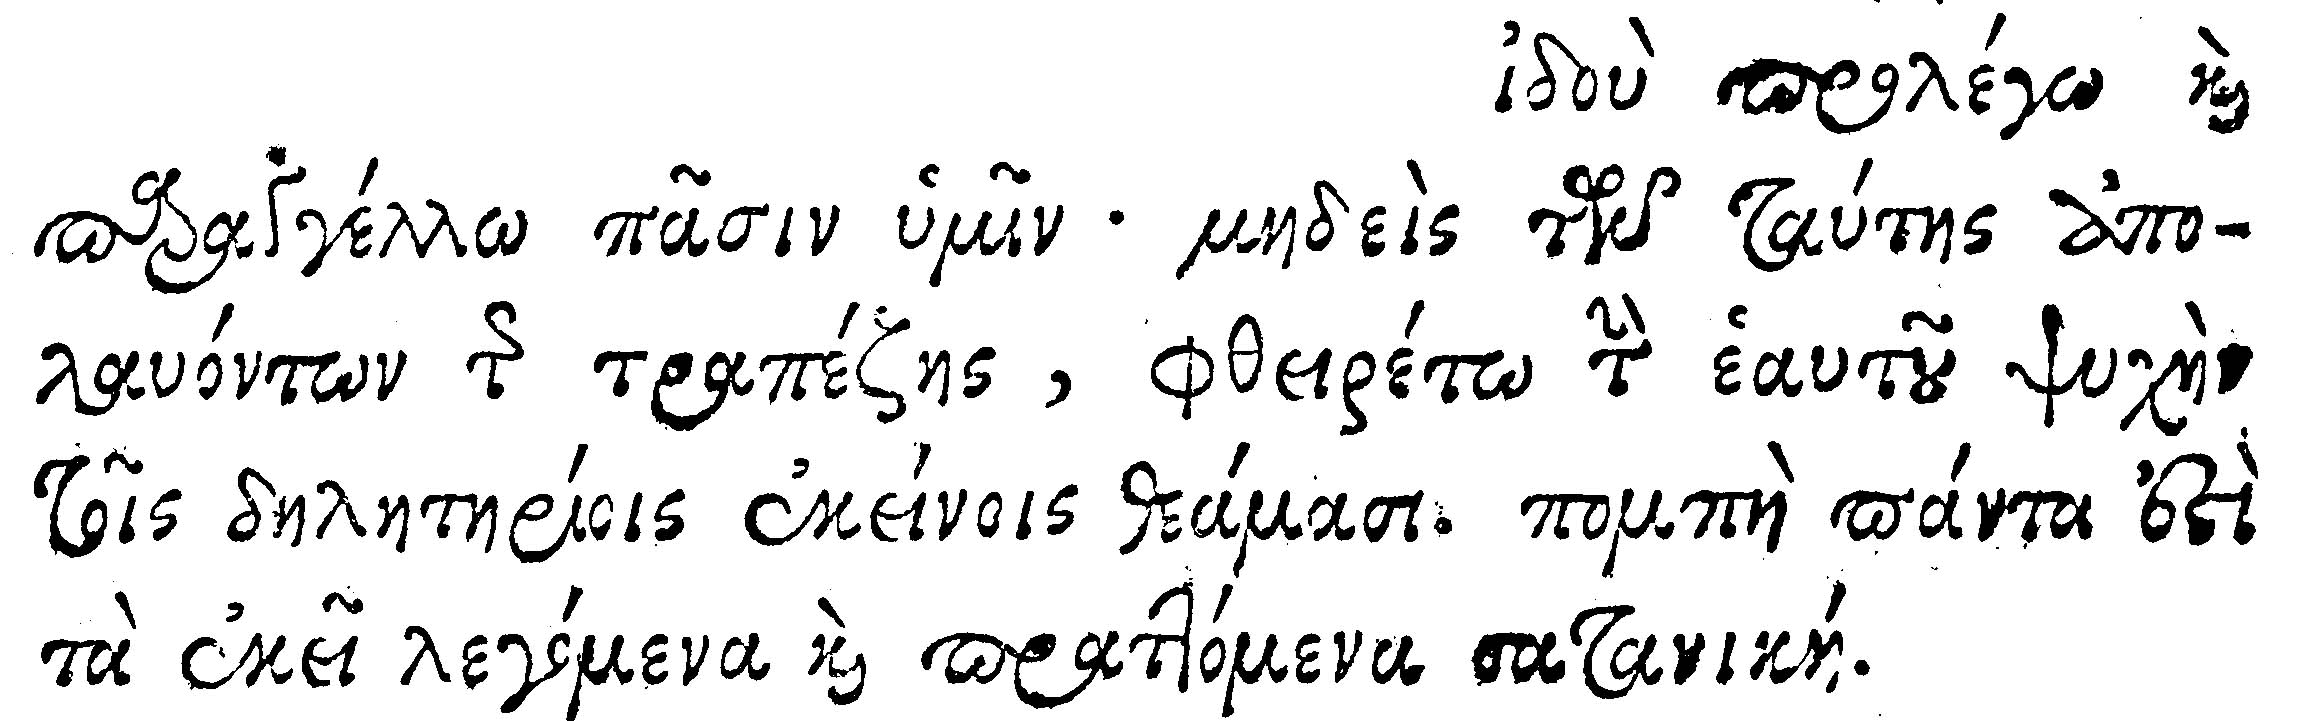 ἰδοὺ προλέγω καὶ
παραγγέλλω πᾶσιν ὑμῖν· μηδεὶς τῶν ταύτης ἀπο-
λαυόντων τῆς τραπέζης, φθειρέτω τὴν ἑαυτοῦ ψυχὴν
τοῖς δηλητηρίοις ἐκείνοις θεάμασι. πομπὴ πάντα ἐστὶ
τὰ ἐκεῖ λεγόμενα καὶ πραττόμενα σατανική.